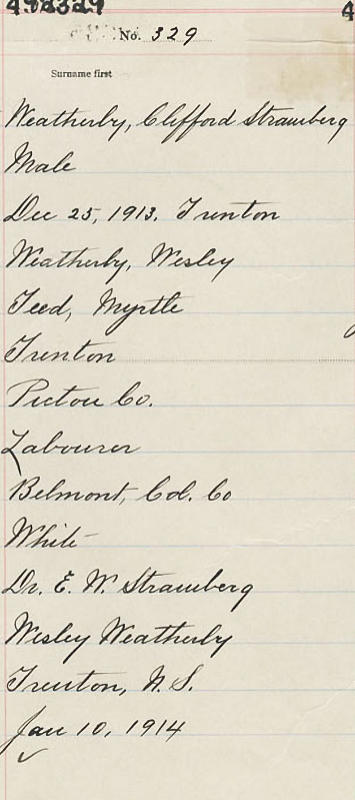 492329
4
No. 329
Surname first
Weatherby, Clifford Stramberg
Male
Dec 25, 1913. Trenton
Weatherby, Wesley
Teed, Myrtle
Trenton
Pictou Co.
Labourer
Belmont, Col. Co
White
Dr. E. W. Stramberg
Wesley Weatherby
Trenton, N.S.
Jan 10, 1914